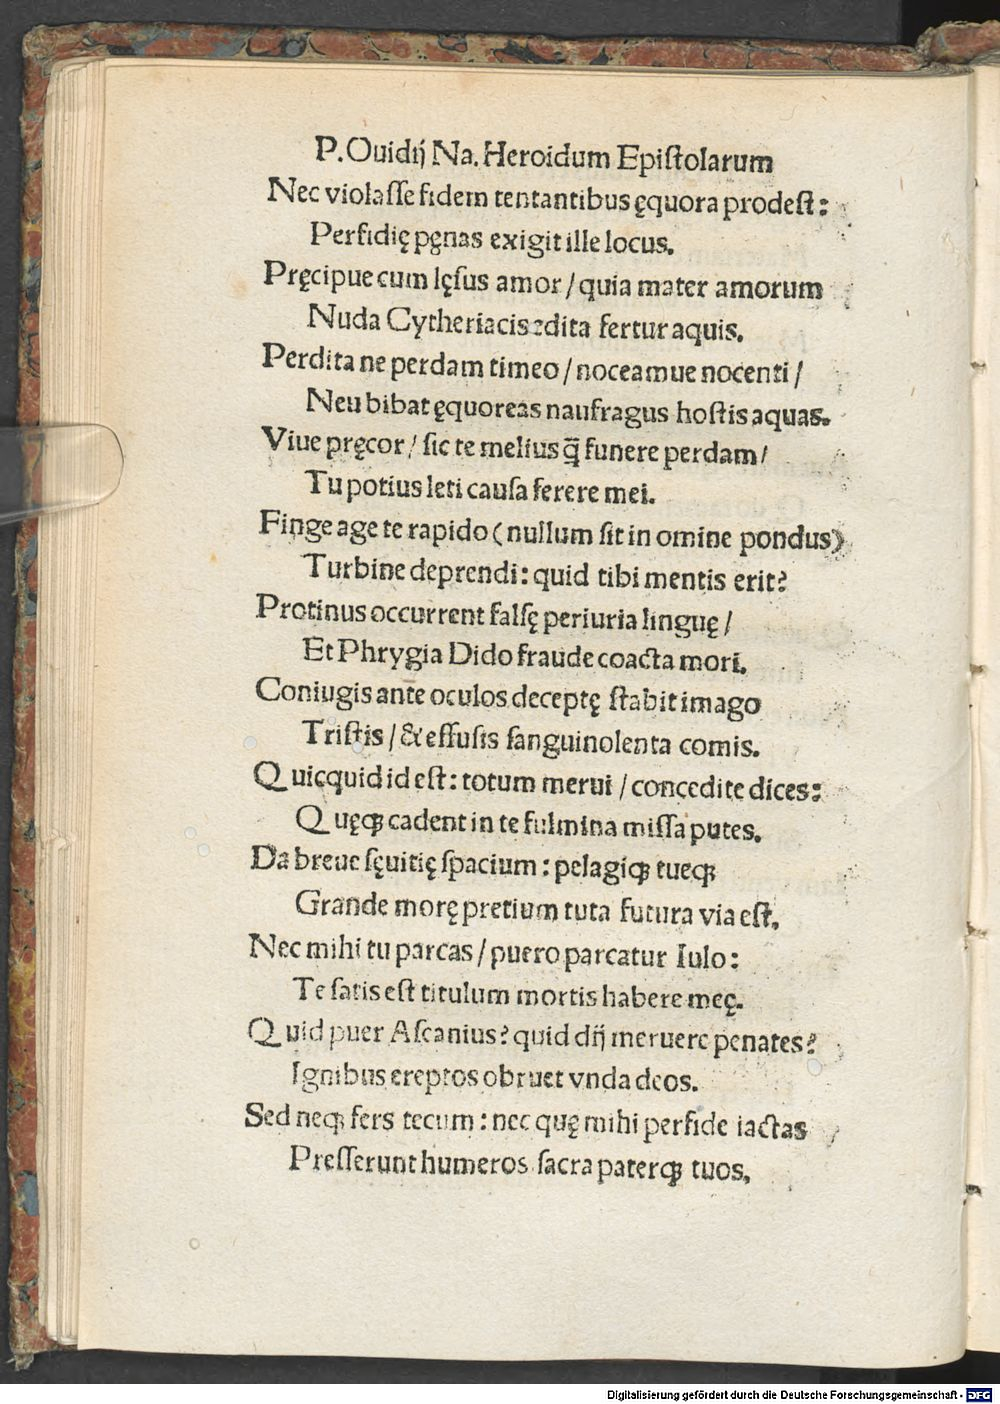 P. Ouidij Na. Heroidum Epiſtolarum
Nec violaſſe fidem tentantibus ęquora prodeſt:
Perfidię pęnas exigit ille locus.
Pręcipue cum lęſus amor / quia mater amorum
Nuda Cytheriacis edita fertur aquis.
Perdita ne perdam timeo / noceamue nocenti /
Neu bibat ęquoreas naufragus hoſtis aquas.
Viue pręcor / ſic te melius q̃ funere perdam /
Tu potius leti cauſa ferere mei.
Finge age te rapido (nullum ſit in omine pondus)
Turbine deprendi: quid tibi mentis erit?
Protinus occurrent falſę periuria linguę /
Et Phrygia Dido fraude coacta mori.
Coniugis ante oculos deceptę ſtabit imago
Triſtis / & effuſis ſanguinolenta comis.
Quicquid id eſt: totum merui / concedite dices:
Quęqꝫ cadent in te fulmina miſſa putes.
Da breue ſęuitię ſpacium: pelagiqꝫ tueqꝫ
Grande morę pretium tuta futura via eſt.
Nec mihi tu parcas / puero parcatur Iulo:
Te ſatis eſt titulum mortis habere meę.
Quid puer Aſcanius? quid dij meruere penates?
Ignibus ereptos obruet vnda deos.
Sed neqꝫ fers tecum: nec quę mihi perfide iactas
Preſſerunt humeros ſacra paterqꝫ tuos.
Digitalisierung gefördert durch die Deutsche Forschungsgemeinschaft - DFG